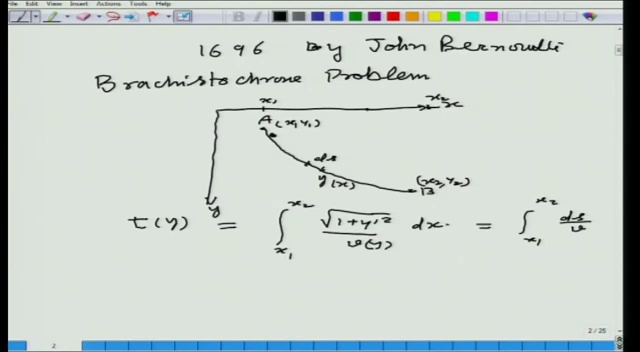 File Edit View Insert Actions Tools Help
1696 By John Bernoulli
Brachistochrone Problem
x₁ x₂ x
A (x₁,y₁)
ds
y(x)
(x₂,y₂)
B
y
t(y) = ∫_{x₁}^{x₂} √(1+y'²)/v(y) dx. = ∫_{x₁}^{x₂} ds/v
2/25
2